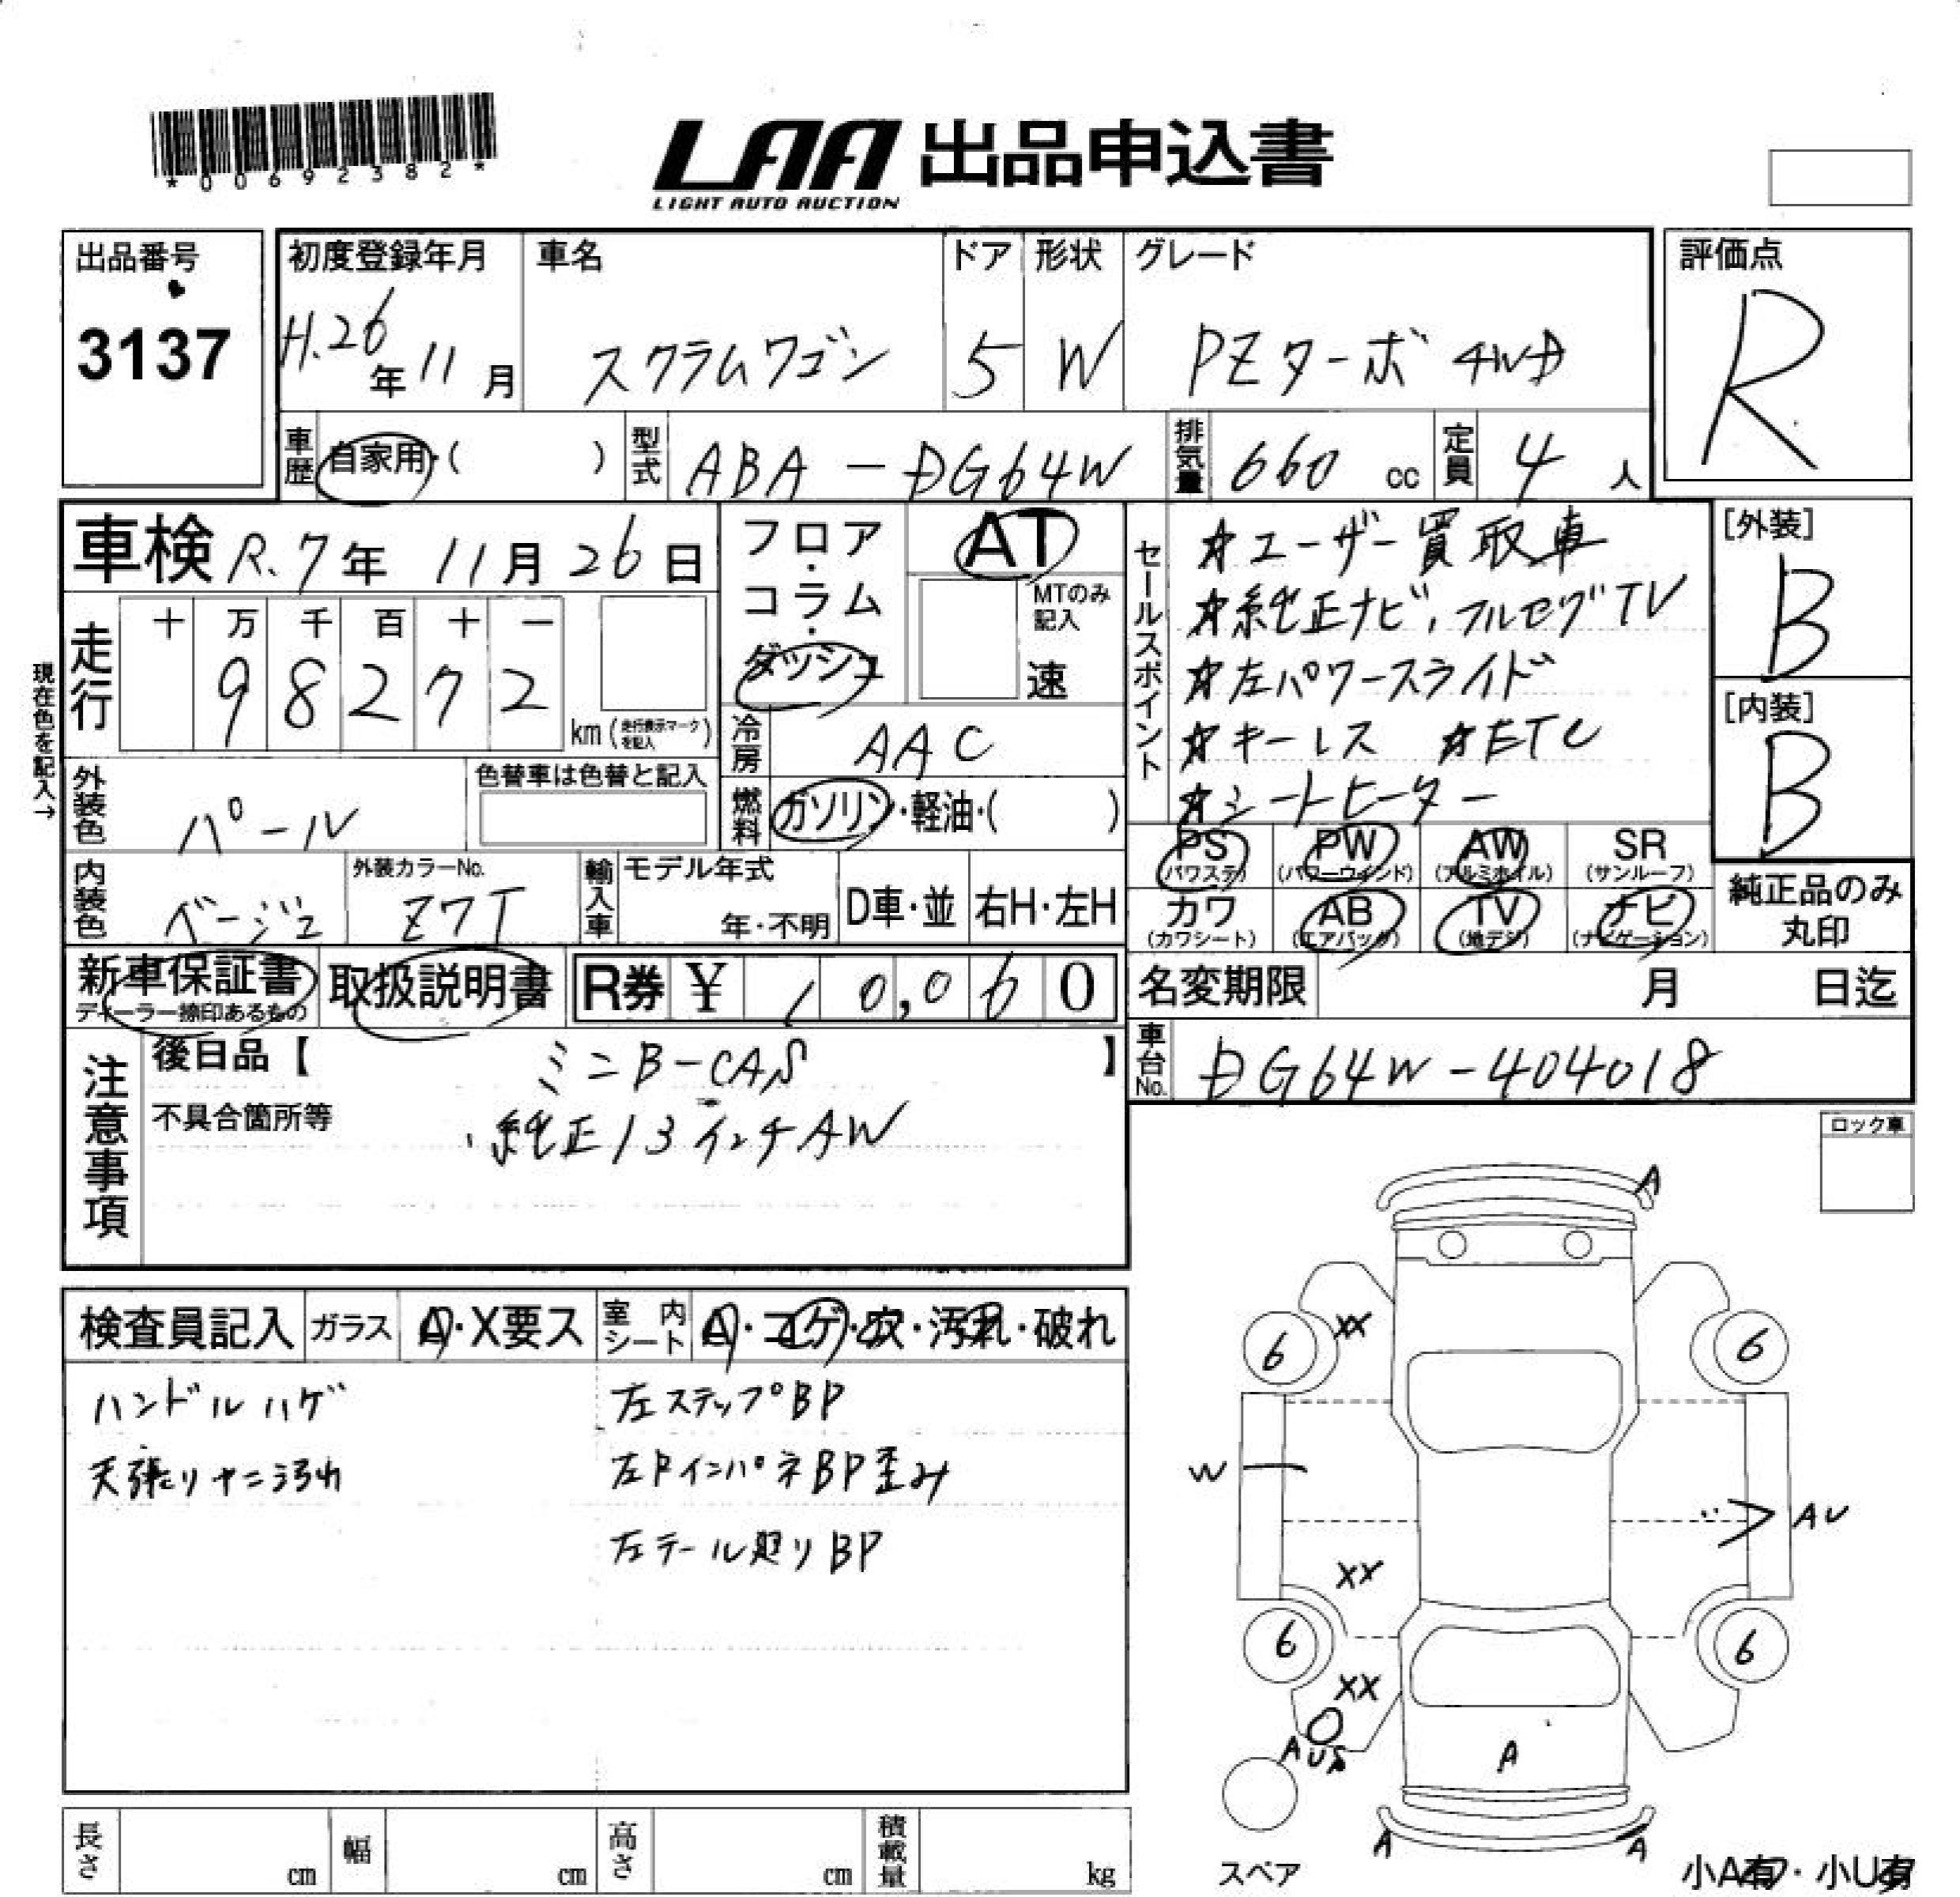 *00692382*
LAA 出品申込書
LIGHT AUTO AUCTION
出品番号
3137
初度登録年月
H.26年11月
車名
スクラムワゴン
ドア
5
形状
W
グレード
PZターボ 4WD
評価点
R
車歴 自家用・( )
型式 ABA-DG64W
排気量 660 cc
定員 4 人
車検 R.7年 11月 26日
フロア・コラム・ダッシュ
AT
MTのみ記入
速
セールスポイント
☆ユーザー買取車
☆純正ナビ、フルセグTV
☆左パワースライド
☆キーレス ☆ETC
☆シートヒーター
[外装]
B
[内装]
B
現在色を記入→
走行
十 万 千 百 十 一
9 8 2 7 2
km(走行表示マークを記入)
冷房 AAC
外装色 パール
色替車は色替と記入
燃料 ガソリン・軽油・( )
PS (パワステ)
PW (パワーウインド)
AW (アルミホイル)
SR (サンルーフ)
カワ (カワシート)
AB (エアバック)
TV (地デジ)
ナビ (ナビゲーション)
純正品のみ丸印
内装色 ベージュ
外装カラーNo. Z7T
輸入車
モデル年式
年・不明
D車・並
右H・左H
新車保証書
ディーラー捺印あるもの
取扱説明書
R券 ¥ 10,060
名変期限 月 日迄
車台No. DG64W-404018
注意事項
後日品【 ミニB-CAS 】
不具合箇所等 、純正13インチAW
ロック車
検査員記入
ガラス A・X要ス
室内シート A・コゲ・穴・汚れ・破れ
ハンドルハゲ
天張りヤニ汚れ
左ステップBP
左Rインパネ BP歪み
左テール廻りBP
A
XX
6
6
W
AU
XX
6
6
XX
A
A
A
スペア
小A有・小U有
長さ cm
幅 cm
高さ cm
積載量 kg